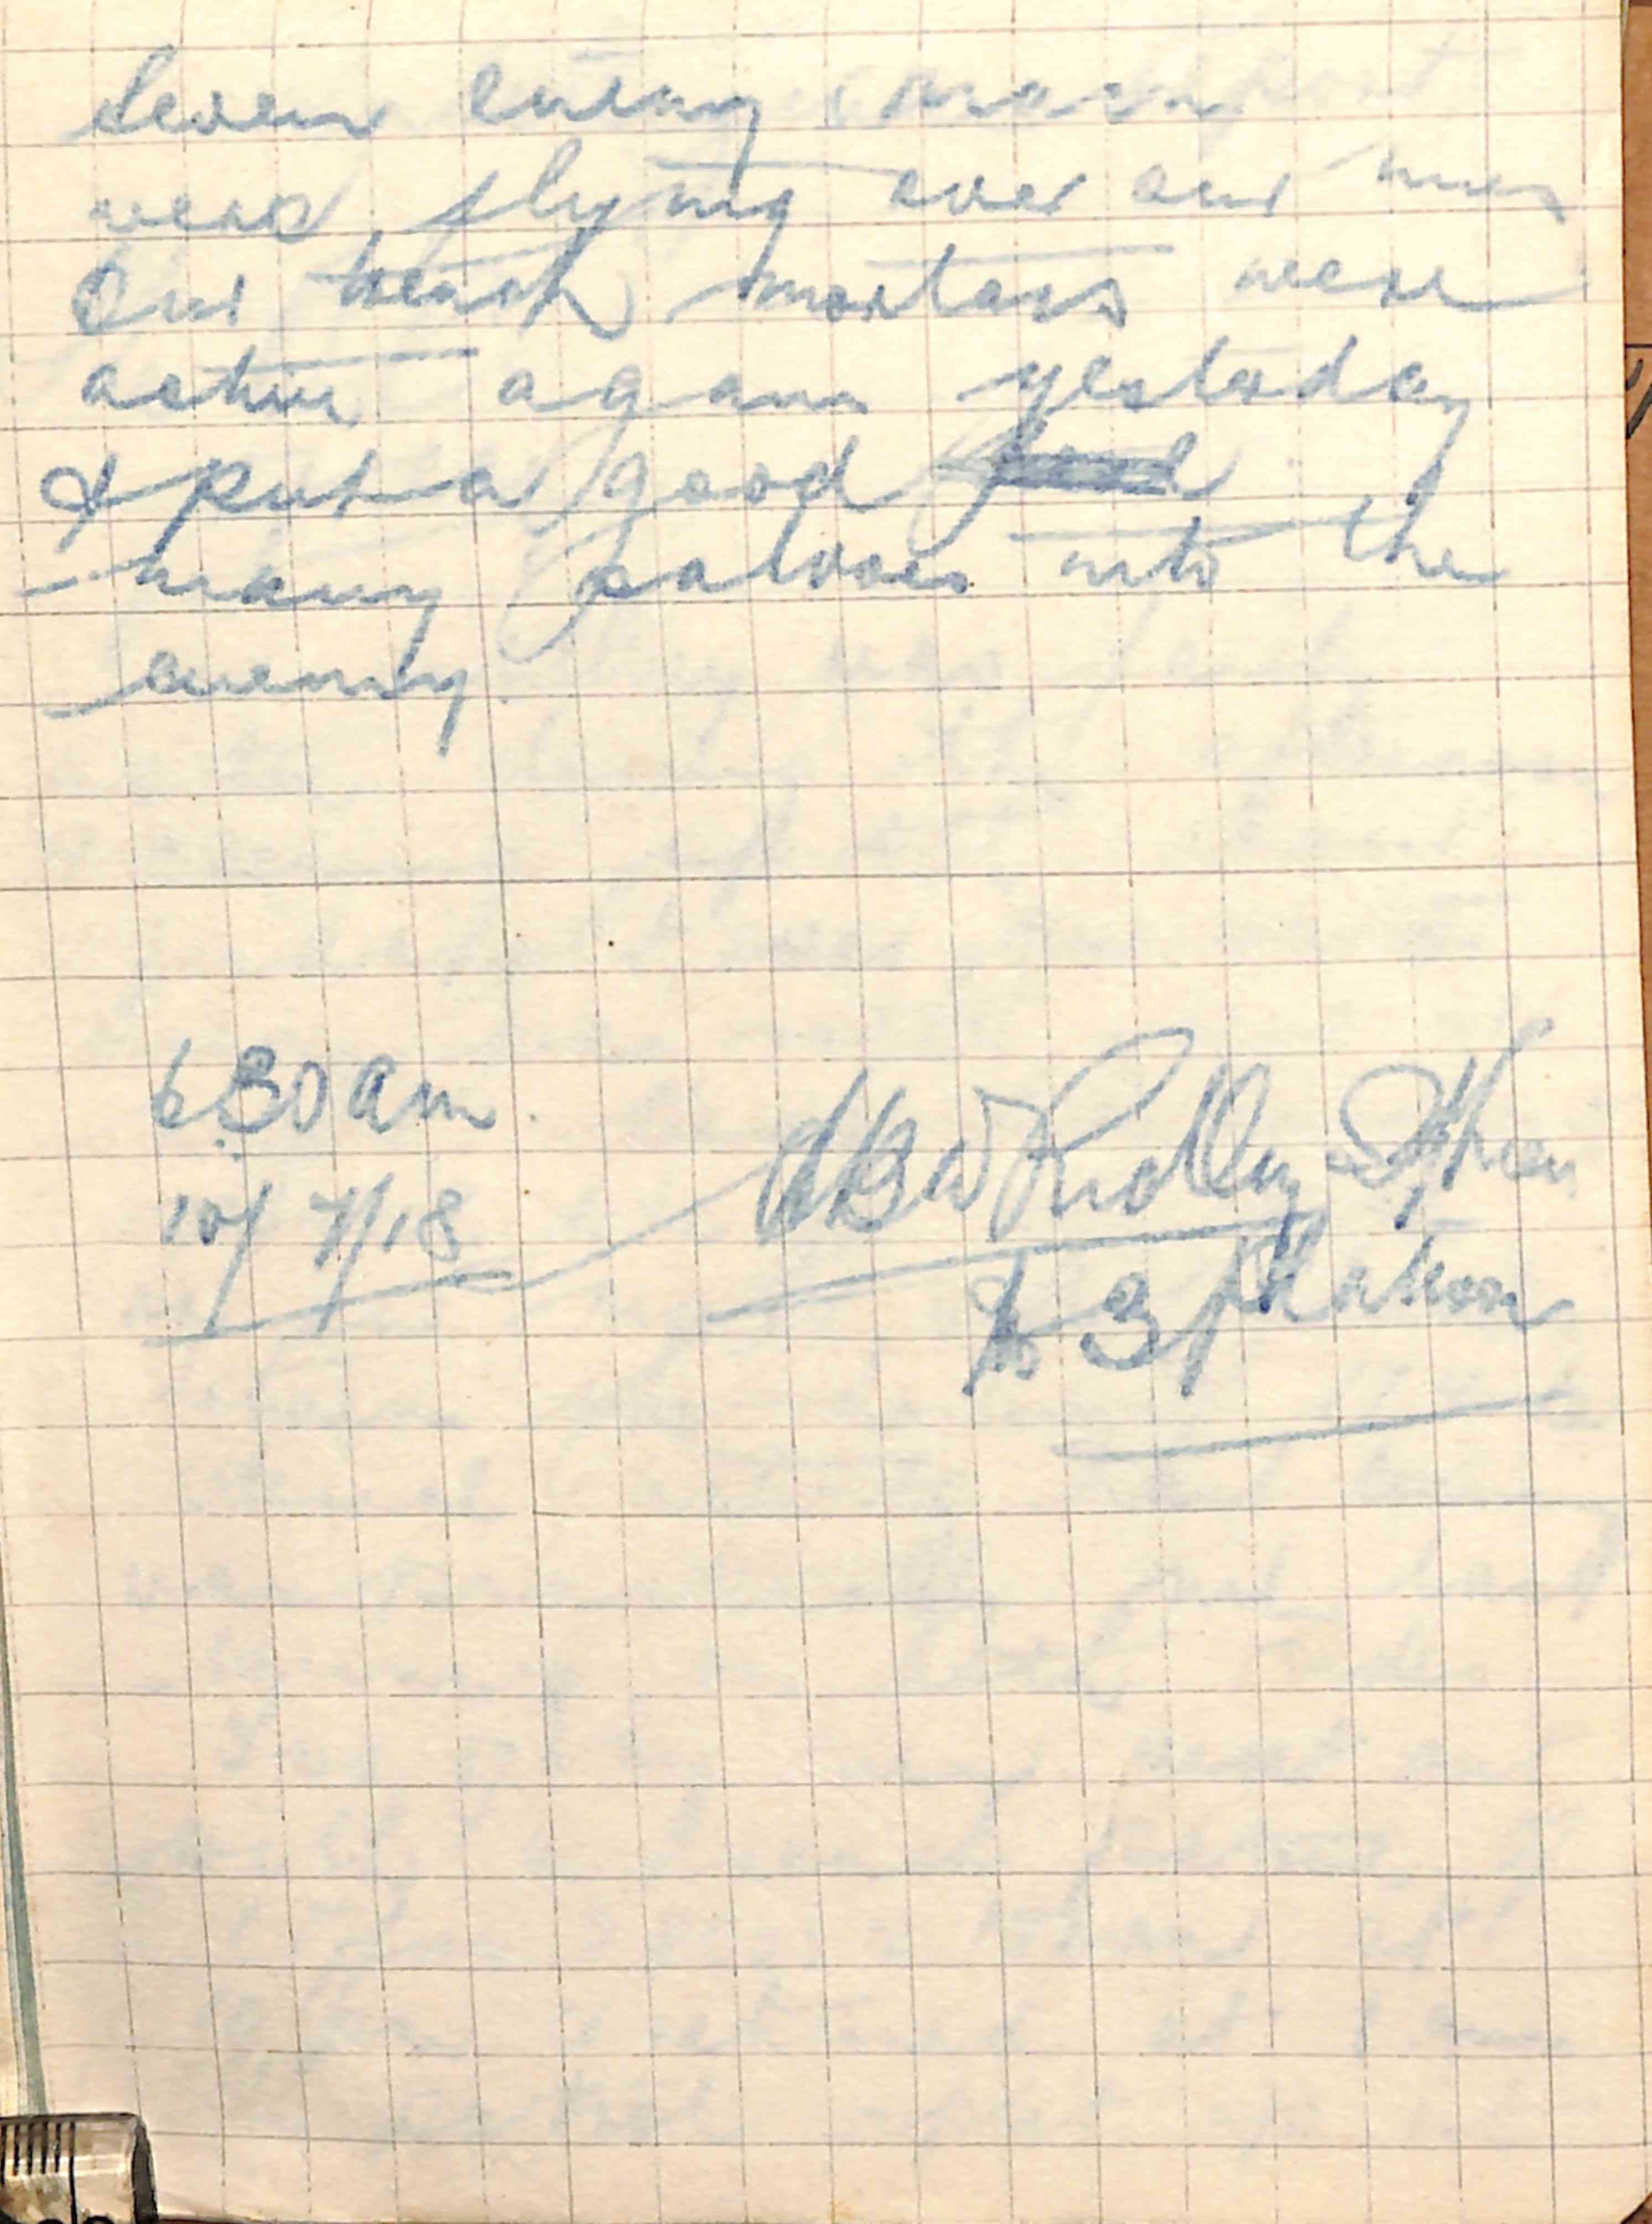 Seven enemy
were flying over our lines
Our trench mortars were
active again yesterday
& put a good
many salvoes into the
enemy.
6.30 am.
10/7/18
Ridley
3 Platoon